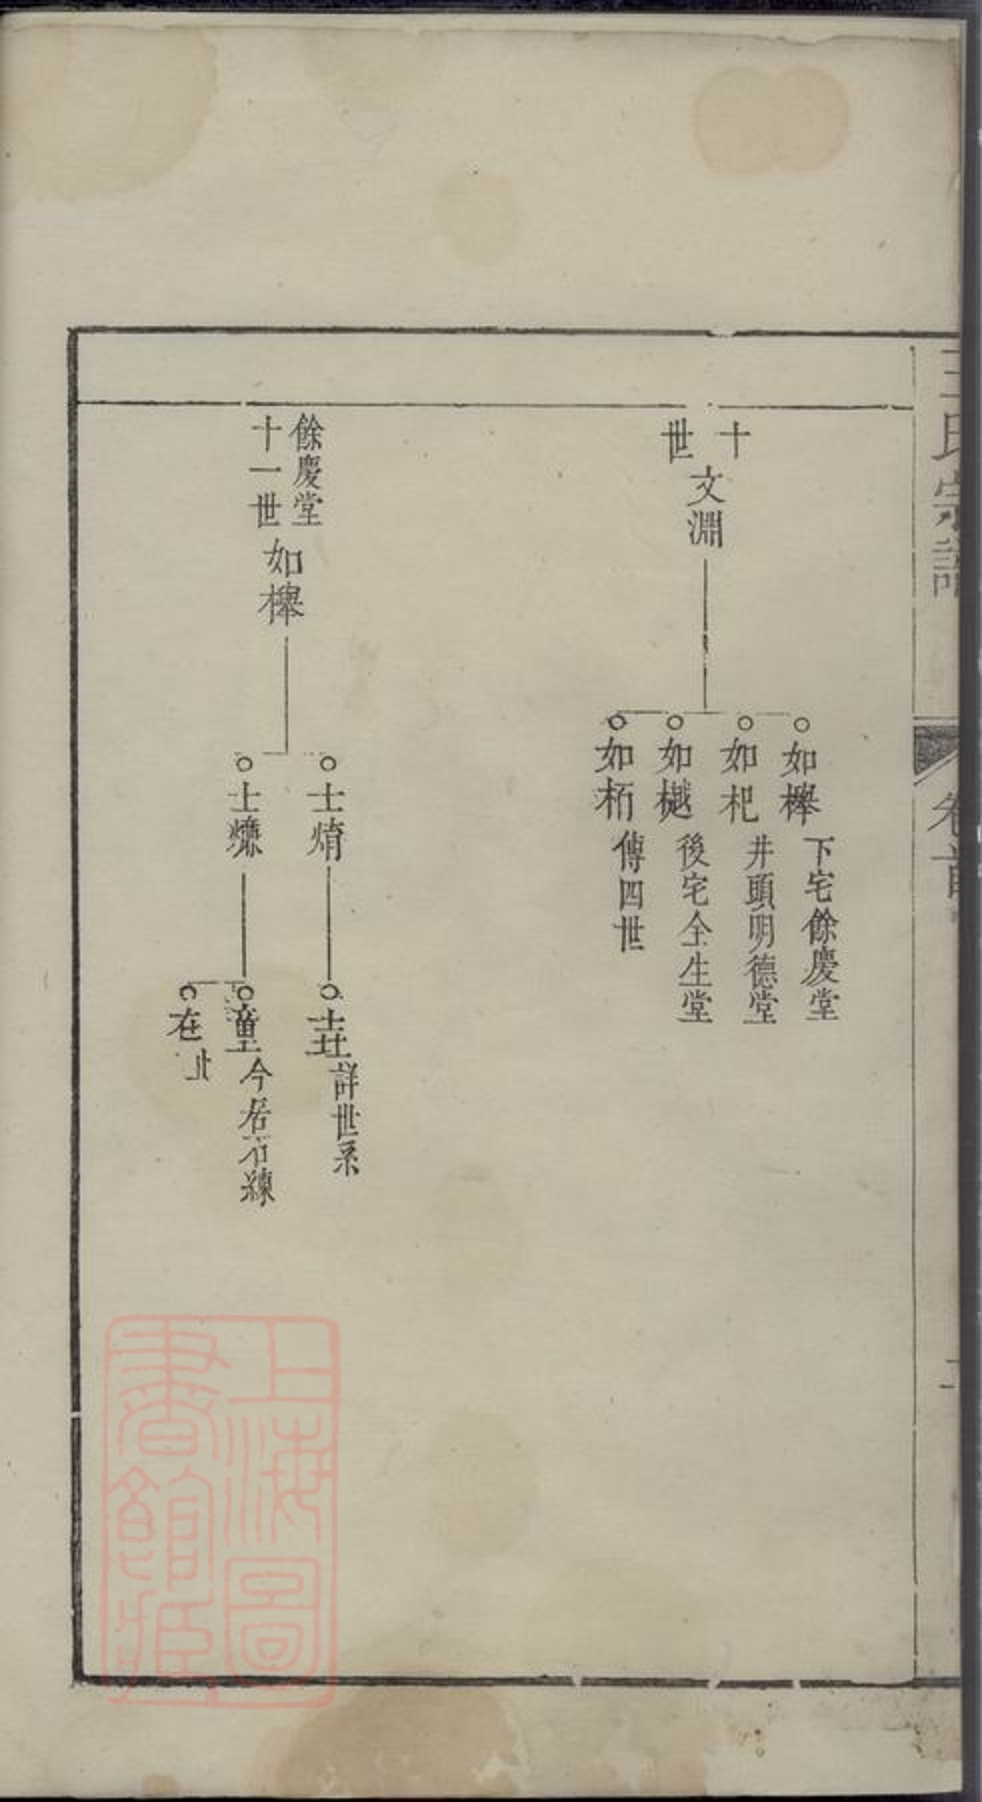 王氏宗譜
卷首
十世
文淵
如㮮
下宅餘慶堂
如杞
井頭明德堂
如樾
後宅全生堂
如栢
傳四世
餘慶堂
十一世
如㮮
士焴
詳世系
士爃
今居石練
在北
上海圖
書館藏